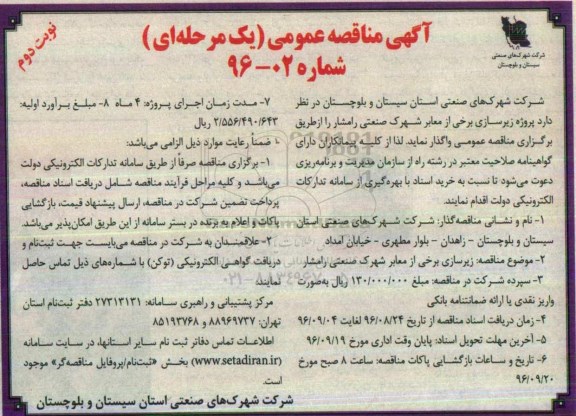 شرکت شهرک‌های صنعتی
سیستان و بلوچستان
آگهی مناقصه عمومی (یک مرحله‌ای)
شماره ۰۲-۹۶
نوبت دوم
شرکت شهرک‌های صنعتی استان سیستان و بلوچستان در نظر
دارد پروژه زیرسازی برخی از معابر شهرک صنعتی رامشار را ازطریق
برگزاری مناقصه عمومی واگذار نماید. لذا از کلیه پیمانکاران دارای
گواهینامه صلاحیت معتبر در رشته راه از سازمان مدیریت و برنامه‌ریزی
دعوت می‌شود تا نسبت به خرید اسناد با بهره‌گیری از سامانه تدارکات
الکترونیکی دولت اقدام نمایند.
۱- نام و نشانی مناقصه‌گذار: شرکت شهرک‌های صنعتی استان
سیستان و بلوچستان - زاهدان - بلوار مطهری - خیابان امداد
۲- موضوع مناقصه: زیرسازی برخی از معابر شهرک صنعتی رامشار
۳- سپرده شرکت در مناقصه: مبلغ ۱۳۰/۰۰۰/۰۰۰ ریال به‌صورت
واریز نقدی یا ارائه ضمانتنامه بانکی
۴- زمان دریافت اسناد مناقصه از تاریخ ۹۶/۰۸/۲۴ لغایت ۹۶/۰۹/۰۴
۵- آخرین مهلت تحویل اسناد: پایان وقت اداری مورخ ۹۶/۰۹/۱۹
۶- تاریخ و ساعات بازگشایی پاکات مناقصه: ساعت ۸ صبح مورخ
۹۶/۰۹/۲۰
۷- مدت زمان اجرای پروژه: ۴ ماه ۸- مبلغ برآورد اولیه:
۲/۵۵۶/۴۹۰/۶۴۳ ریال
ضمناً رعایت موارد ذیل الزامی می‌باشد:
۱- برگزاری مناقصه صرفاً از طریق سامانه تدارکات الکترونیکی دولت
می‌باشد و کلیه مراحل فرآیند مناقصه شامل دریافت اسناد مناقصه،
پرداخت تضمین شرکت در مناقصه، ارسال پیشنهاد قیمت، بازگشایی
پاکات و اعلام به برنده در بستر سامانه از این طریق امکان‌پذیر می‌باشد.
۲- علاقمندان به شرکت در مناقصه می‌بایست جهت ثبت‌نام و
دریافت گواهی الکترونیکی (توکن) با شماره‌های ذیل تماس حاصل
نمایند:
مرکز پشتیبانی و راهبری سامانه: ۲۷۳۱۳۱۳۱ دفتر ثبت‌نام استان
تهران: ۸۸۹۶۹۷۳۷ و ۸۵۱۹۳۷۶۸
اطلاعات تماس دفاتر ثبت نام سایر استانها، در سایت سامانه
(www.setadiran.ir) بخش «ثبت‌نام/پروفایل مناقصه‌گر» موجود
است.
شرکت شهرک‌های صنعتی استان سیستان و بلوچستان